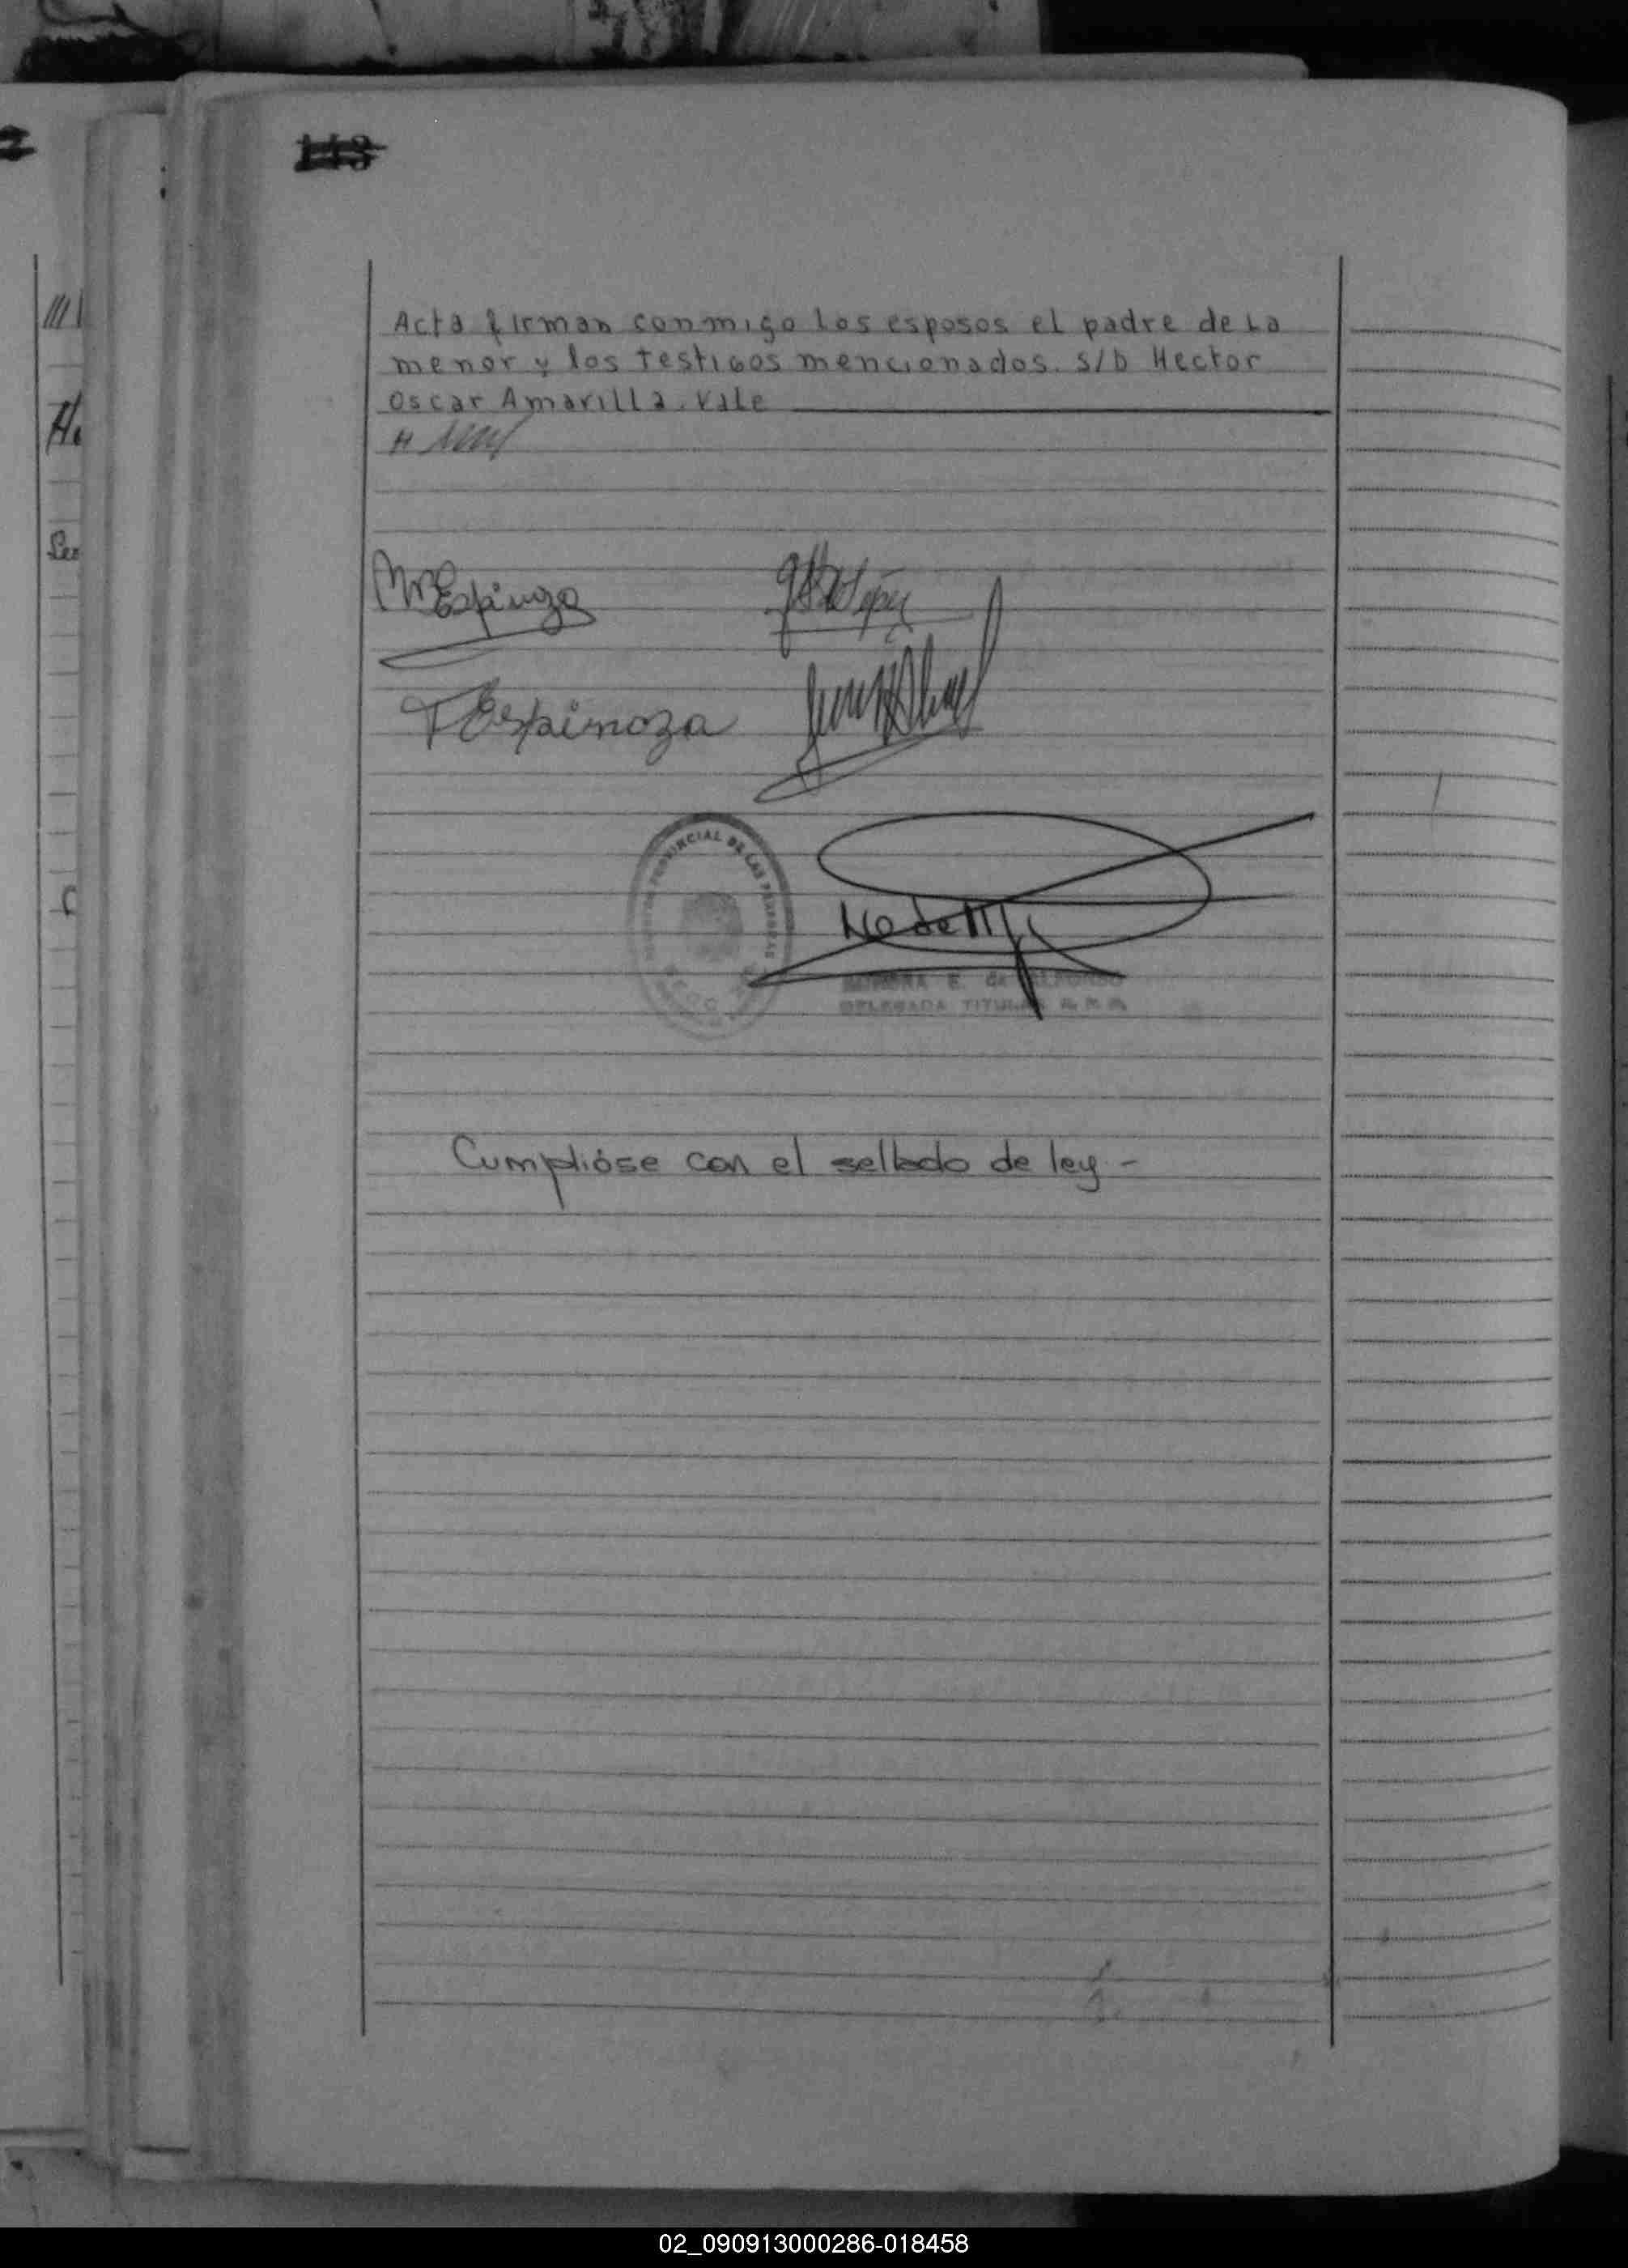 143
Acta firman conmigo los esposos el padre de La
menor y los testigos mencionados. s/b Hector
Oscar Amarilla. Vale
H
MREspinoza
T Espinoza
PROVINCIAL DE LAS PERSONAS
E. de ALFONSO
DELEGADA TITULAR R.P.P.
Cumplióse con el sellado de ley -
02_090913000286-018458